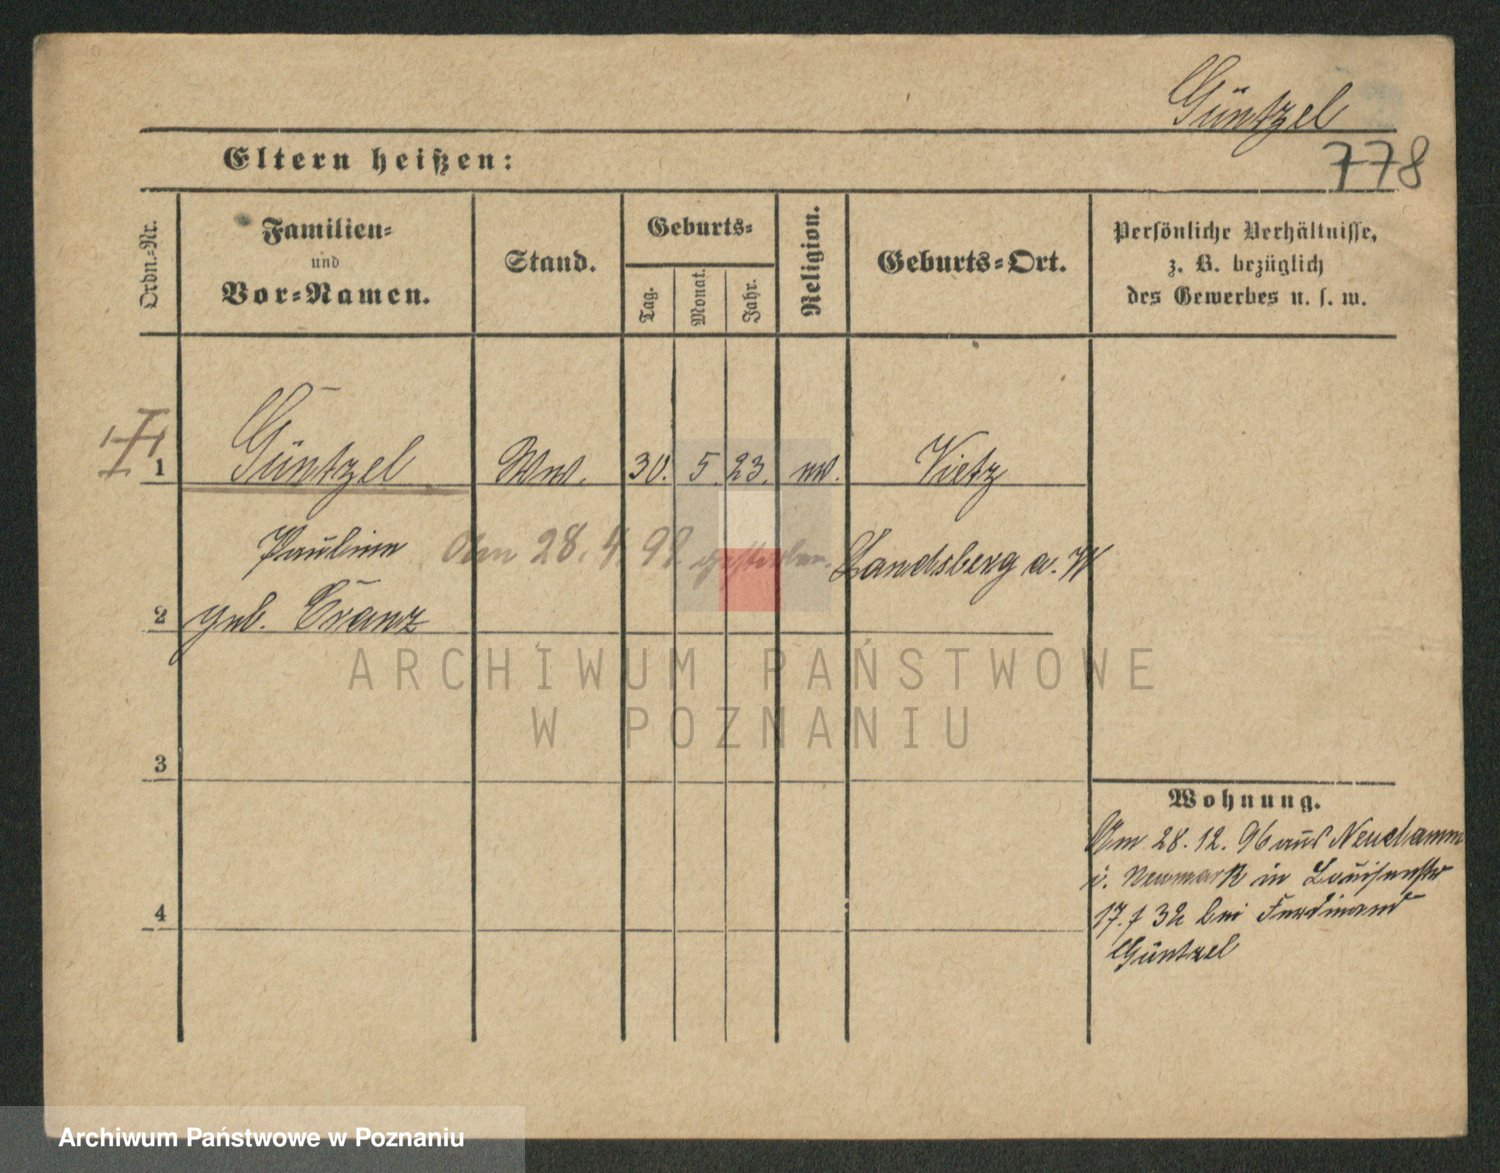 Güntzel
778
Eltern heißen:
Ordn.-Nr.
Familien-
und
Vor-Namen.
Stand.
Geburts-
Tag.
Monat.
Jahr.
Religion.
Geburts-Ort.
Persönliche Verhältnisse,
z. B. bezüglich
des Gewerbes u. s. w.
1 Güntzel Ww. 30. 5. 23. ev. Vietz
Pauline Am 28. 4. 99 gestorben. Landsberg a. W
2 geb. Cranz
3
4
Wohnung.
Am 28. 12. 96 aus Neudamm
i. Neumark in Louisenstr
17. f 3h bei Ferdinand
Güntzel
ARCHIWUM PAŃSTWOWE
W POZNANIU
Archiwum Państwowe w Poznaniu